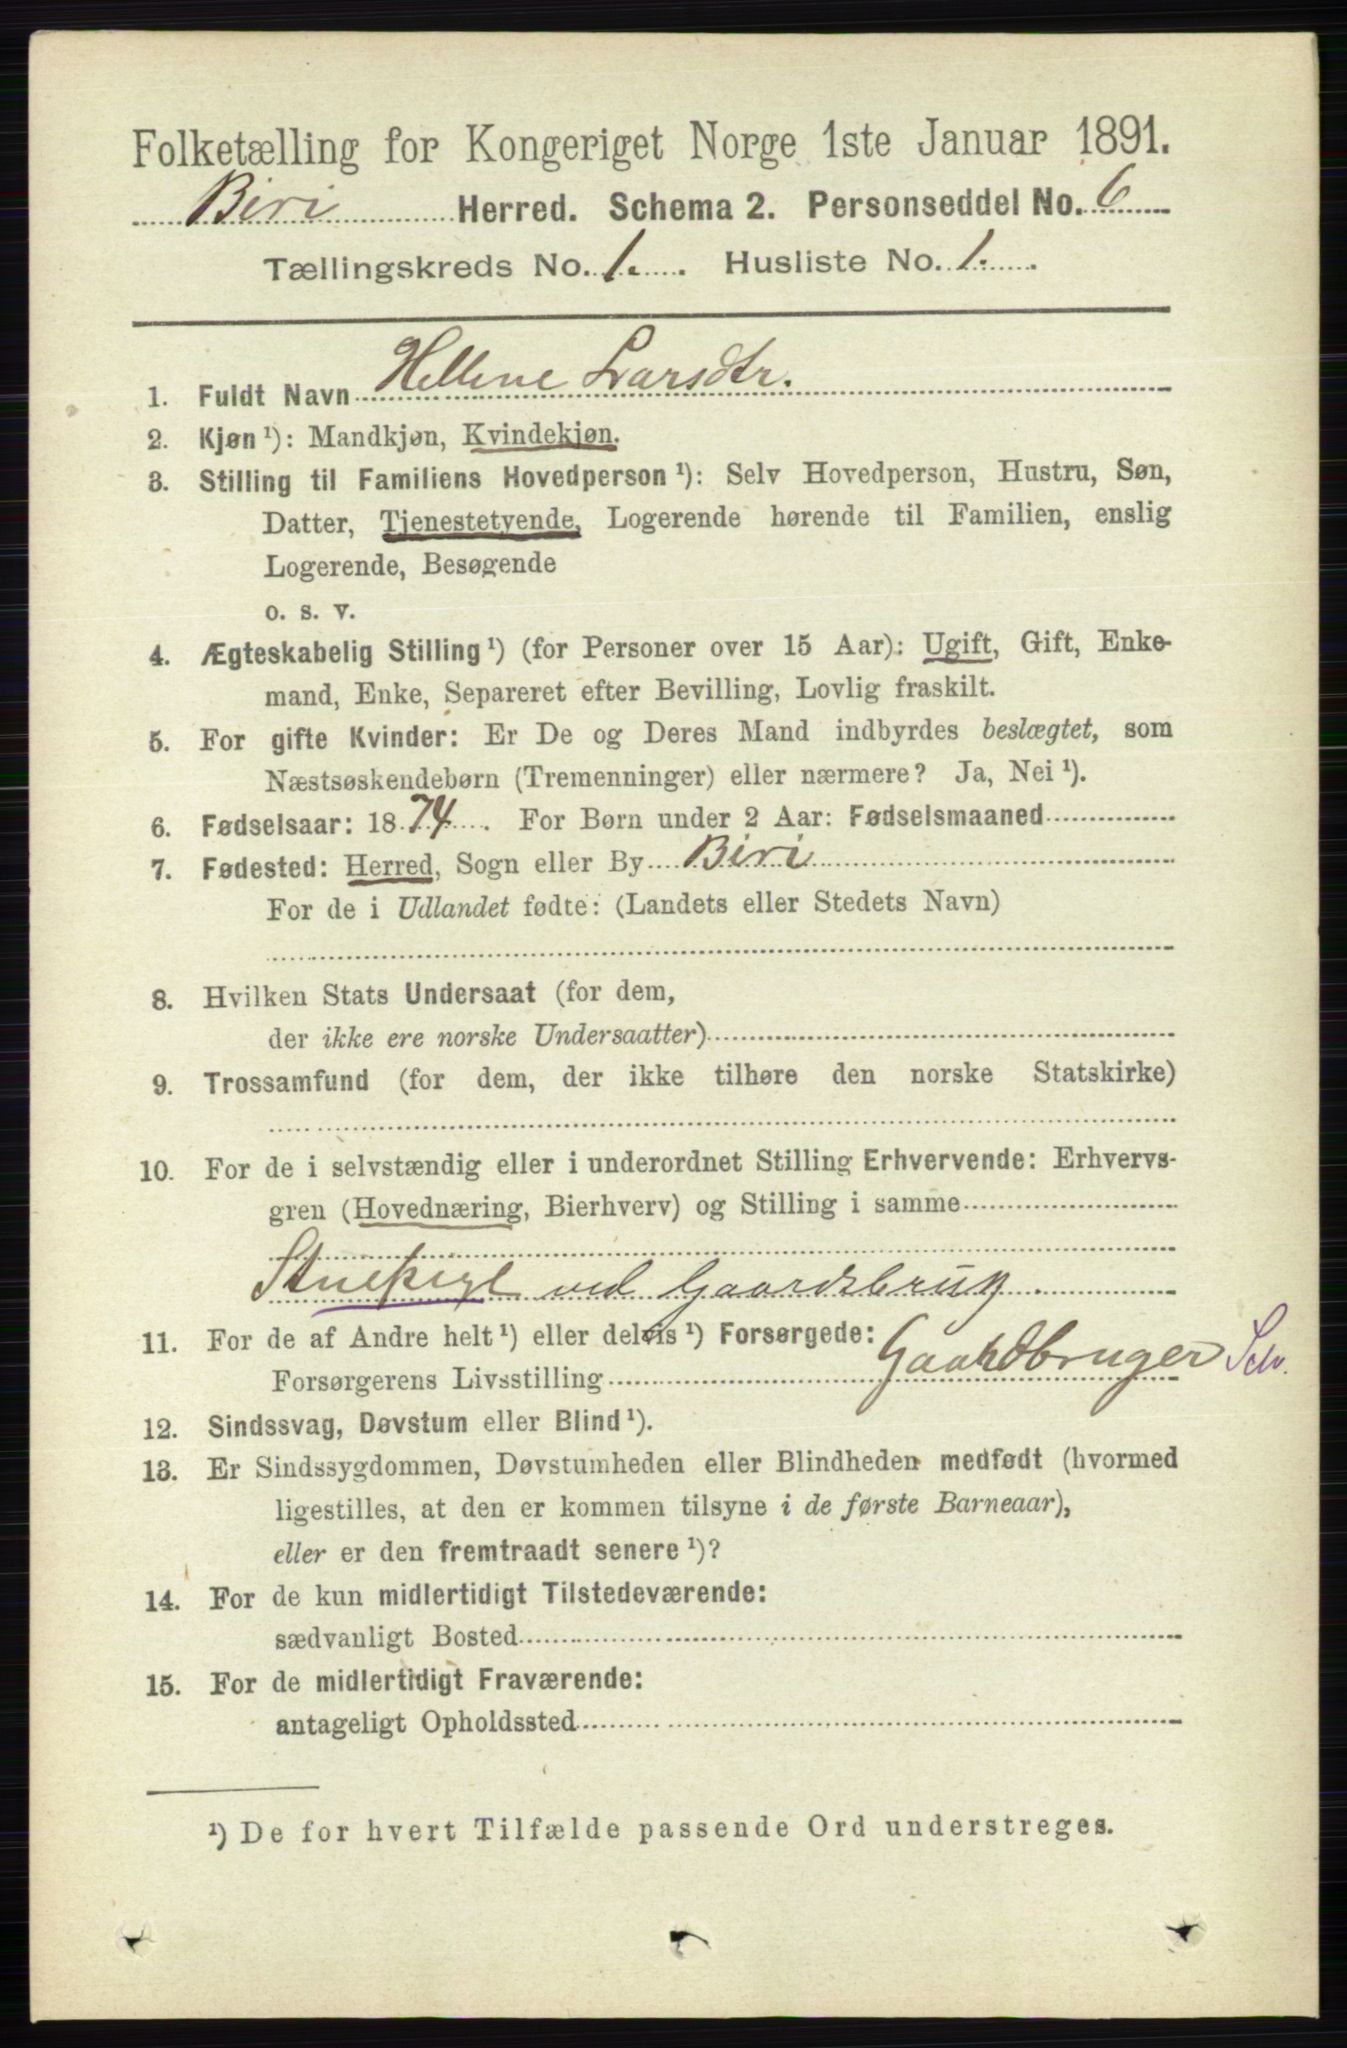 Folketælling for Kongeriget Norge 1ste Januar 1891.
Biri Herred. Schema 2. Personseddel No. 6
Tællingskreds No. 1. Husliste No. 1.
1. Fuldt Navn Hellene Larsdtr.
2. Kjøn ¹): Mandkjøn, Kvindekjøn.
3. Stilling til Familiens Hovedperson ¹): Selv Hovedperson, Hustru, Søn,
Datter, Tjenestetyende, Logerende hørende til Familien, enslig
Logerende, Besøgende
o. s. v.
4. Ægteskabelig Stilling ¹) (for Personer over 15 Aar): Ugift, Gift, Enke-
mand, Enke, Separeret efter Bevilling, Lovlig fraskilt.
5. For gifte Kvinder: Er De og Deres Mand indbyrdes beslægtet, som
Næstsøskendebørn (Tremenninger) eller nærmere? Ja, Nei ¹).
6. Fødselsaar: 1874. For Børn under 2 Aar: Fødselsmaaned
7. Fødested: Herred, Sogn eller By Biri
For de i Udlandet fødte: (Landets eller Stedets Navn)
8. Hvilken Stats Undersaat (for dem,
der ikke ere norske Undersaatter)
9. Trossamfund (for dem, der ikke tilhøre den norske Statskirke)
10. For de i selvstændig eller i underordnet Stilling Erhvervende: Erhvervs-
gren (Hovednæring, Bierhverv) og Stilling i samme
Stuepige ved Gaardsbrug.
11. For de af Andre helt ¹) eller delvis ¹) Forsørgede:
Forsørgerens Livsstilling Gaardbruger Selv.
12. Sindssvag, Døvstum eller Blind ¹).
13. Er Sindssygdommen, Døvstumheden eller Blindheden medfødt (hvormed
ligestilles, at den er kommen tilsyne i de første Barneaar),
eller er den fremtraadt senere ¹)?
14. For de kun midlertidigt Tilstedeværende:
sædvanligt Bosted
15. For de midlertidigt Fraværende:
antageligt Opholdssted
¹) De for hvert Tilfælde passende Ord understreges.